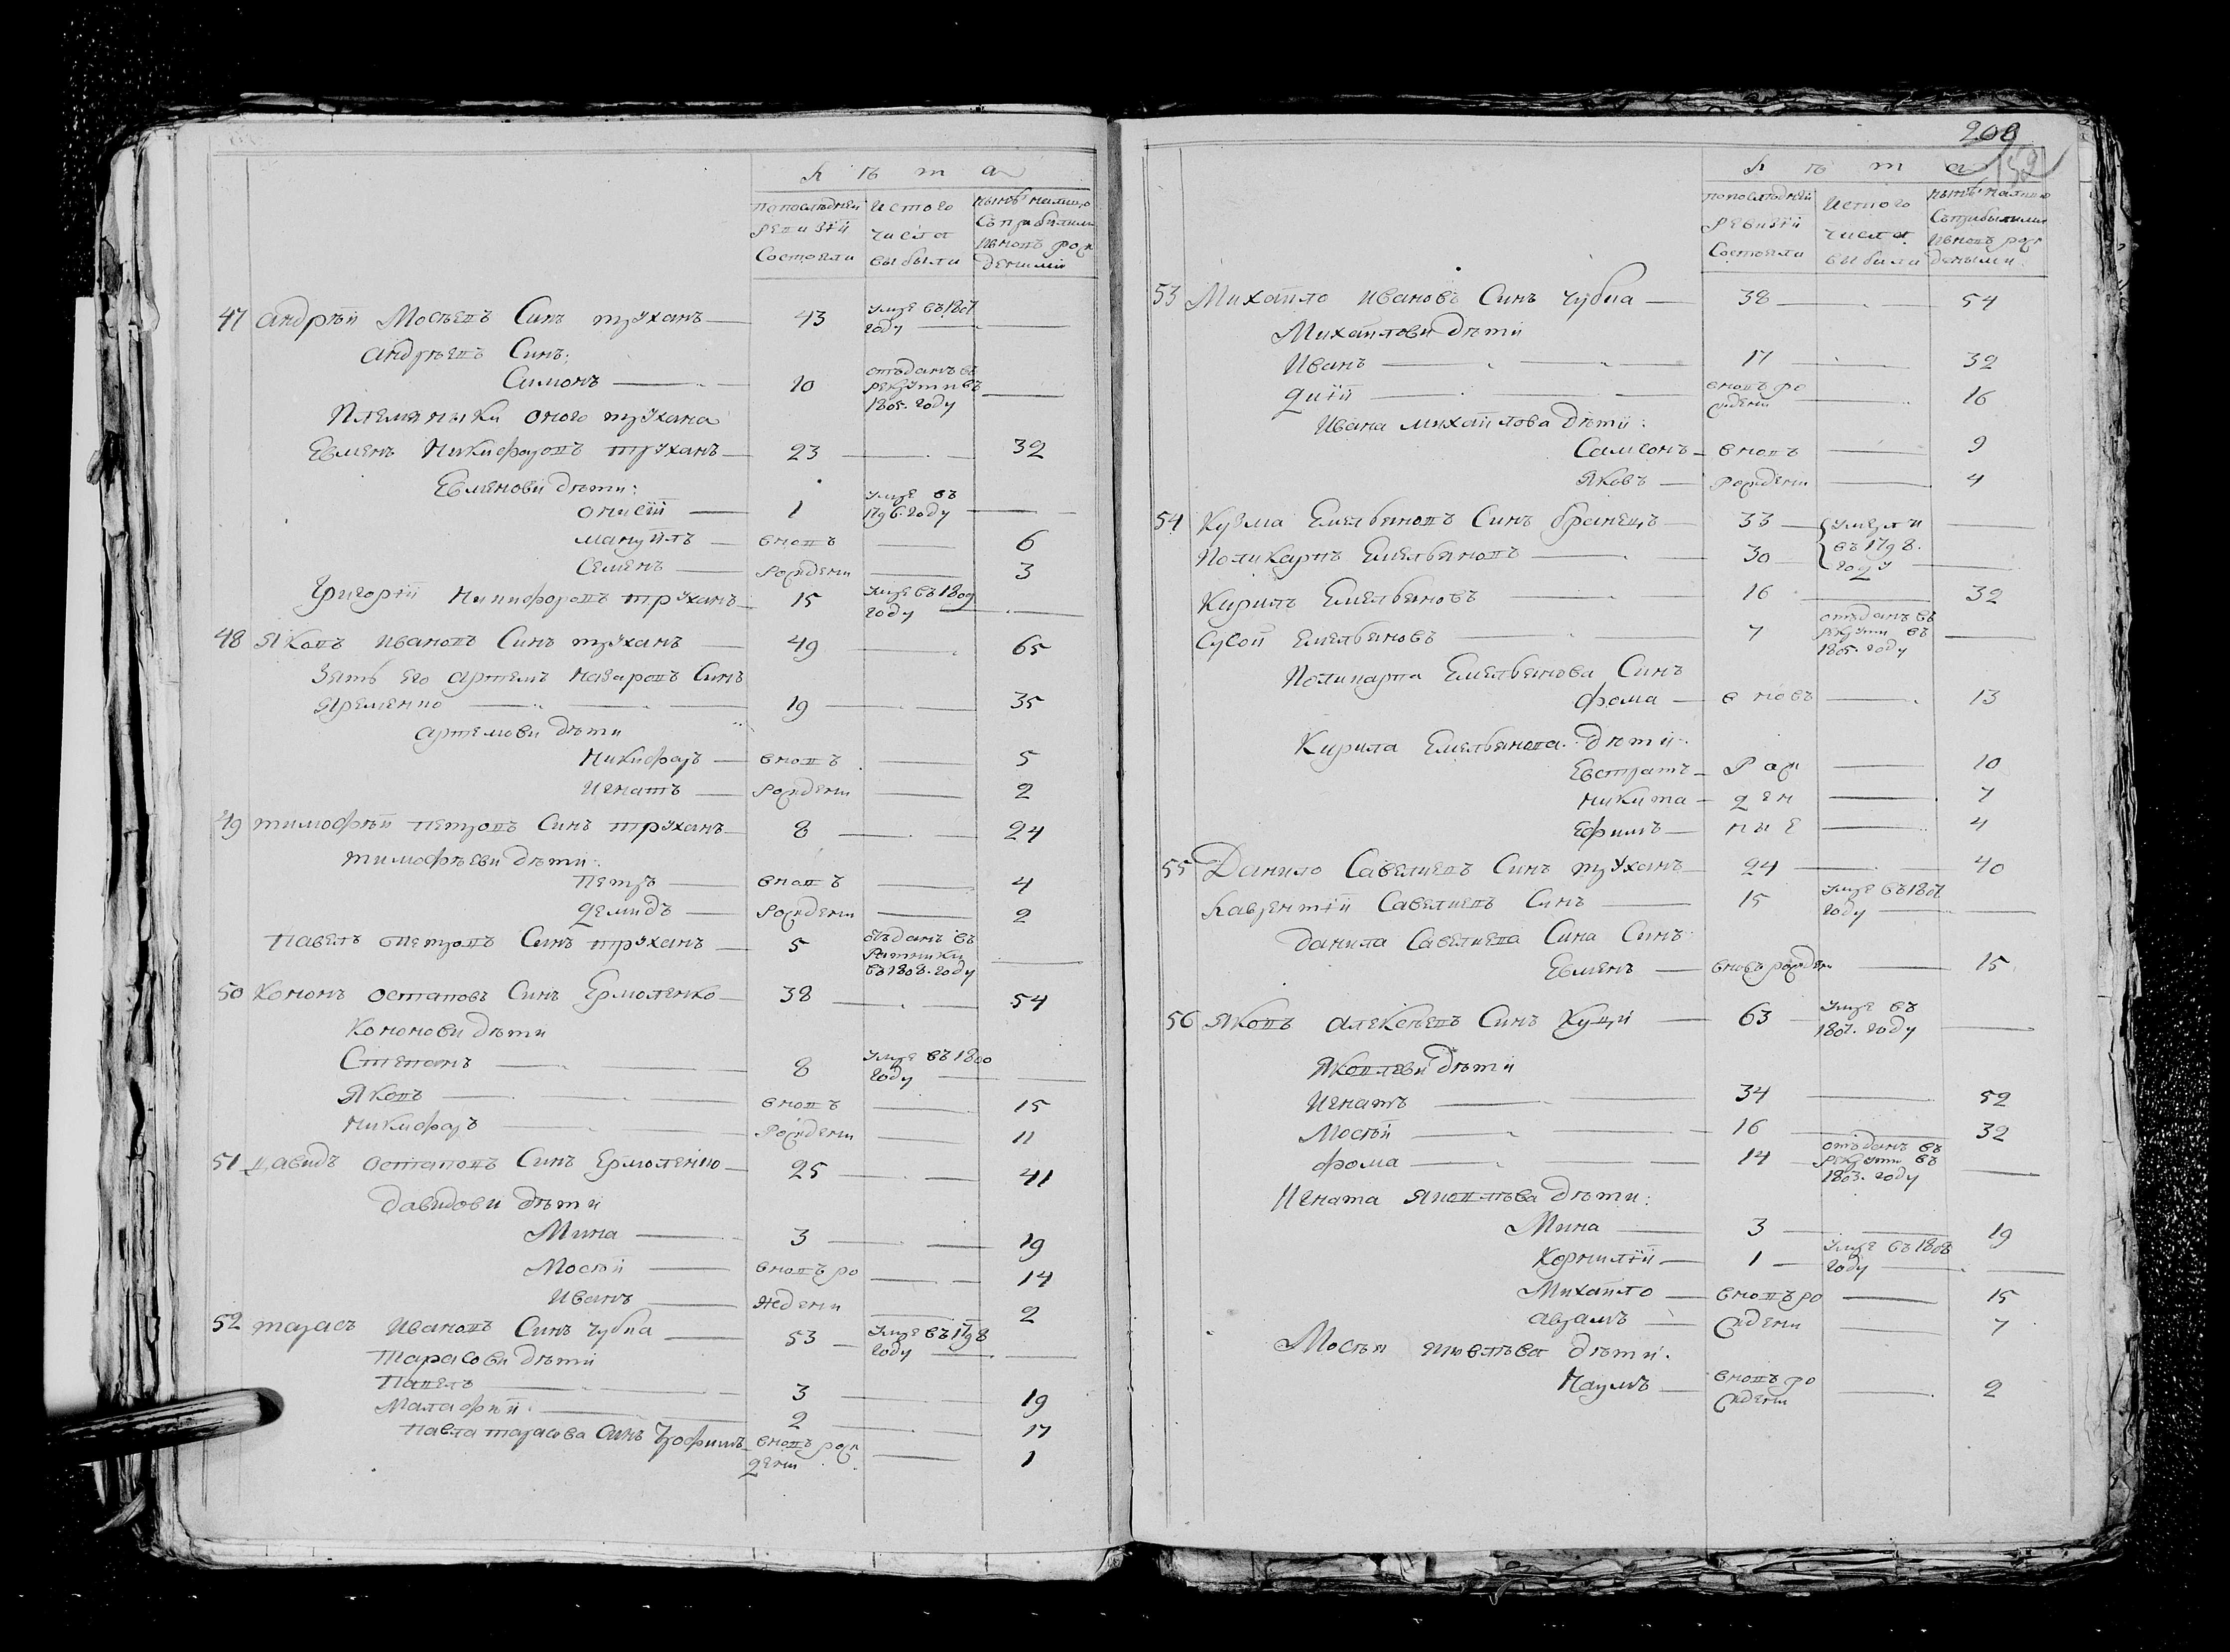 л ѣ т а
попослѣдней ревизіи состояли
истого числа выбыли
нынѣ налицо съ прибылими и вновь рожденими
47 Андрѣй Мосѣевъ Синъ Труханъ — 43 умре въ 1807 году —
Андрѣевъ Синъ:
Симонъ — 10 отъданъ въ рекрути въ 1805. году —
Племяныки оного Трухана
Евменъ Никифоровъ Труханъ — 23 — 32
Евменови дѣти:
Онисій — 1 умре въ 1796. году —
Мануйлъ — вновъ — 6
Семенъ — рождени — 3
Григорій Никифоровъ Труханъ — 15 умре въ 1809 году —
48 Яковъ Ивановъ Синъ Труханъ — 49 — 65
Зять его Артемъ Назаровъ Синъ
Яременко — 19 — 35
Артемови дѣти
Никифоръ — вновъ — 5
Игнатъ — рождени — 2
49 Тимофѣй Петровъ Синъ Труханъ — 8 — 24
Тимофѣеви дѣти:
Петръ — вновъ — 4
Демидъ — рождени — 2
Павелъ Петровъ Синъ Труханъ — 5 отъданъ въ ратники въ 1808. году —
50 Кононъ Остаповъ Синъ Ермоленко — 38 — 54
Кононови дѣти
Степанъ — 8 умре въ 1800 году —
Яковъ — вновъ — 15
Никифоръ — рождени — 11
51 Давидъ Остаповъ Синъ Ермоленко — 25 — 41
Давидови дѣти
Мина — 3 — 19
Мосѣй — вновъ ро — 14
Иванъ — ждени — 2
52 Тарасъ Ивановъ Синъ Чубка — 53 — умре въ 1798 году —
Тарасови дѣти
Павелъ — 3 — 19
Малафѣй — 2 — 17
Павла Тарасова Синъ Трофимъ — вновъ рождени — 1
209
152
л ѣ т а
попослѣдней ревизіи состояли
истого числа выбыли
нынѣ налицо съ прибылими и вновъ рождеными
53 Михайло Ивановъ Синъ Чубка — 38 — 54
Михайлови дѣти
Иванъ — 17 — 32
Дий — вновъ рождени — 16
Ивана Михайлова дѣти:
Самсонъ — вновъ — 9
Яковъ — рождени — 4
54 Кузма Емельяновъ Синъ Бранецъ — 33 — умерли —
Поликарпъ Емельяновъ — 30 въ 1798. году —
Кирилъ Емельяновъ — 16 — 32
Сусой Емельяновъ — 7 отъданъ въ рекрути въ 1805. году —
Поликарпа Емельянова Синъ
Фома — вновъ — 13
Кирила Емельянова дѣти:
Евстратъ — рож — 10
Никита — ден — 7
Ефимъ — ные — 4
55 Данило Савелиевъ Синъ Труханъ — 24 — 40
Лаврентій Савелиевъ Синъ — 15 умре въ 1807 году —
Данила Савелиева Сина Синъ
Евменъ — вновъ рождени — 15
56 Яковъ Алексѣевъ Синъ Куций — 63 — умре въ 1807. году —
Яковлеви дѣти
Игнатъ — 34 — 52
Мосѣй — 16 — 32
Фома — 14 — отъданъ въ рекрути въ 1803. году —
Игната Яковлѣва дѣти:
Мина — 3 — 19
Корнилій — 1 — умре въ 1808 году —
Михайло — вновъ ро — 15
Аврамъ — ждени — 7
Мосѣя Яковлѣва дѣти.
Наумъ — вновъ рождени — 2